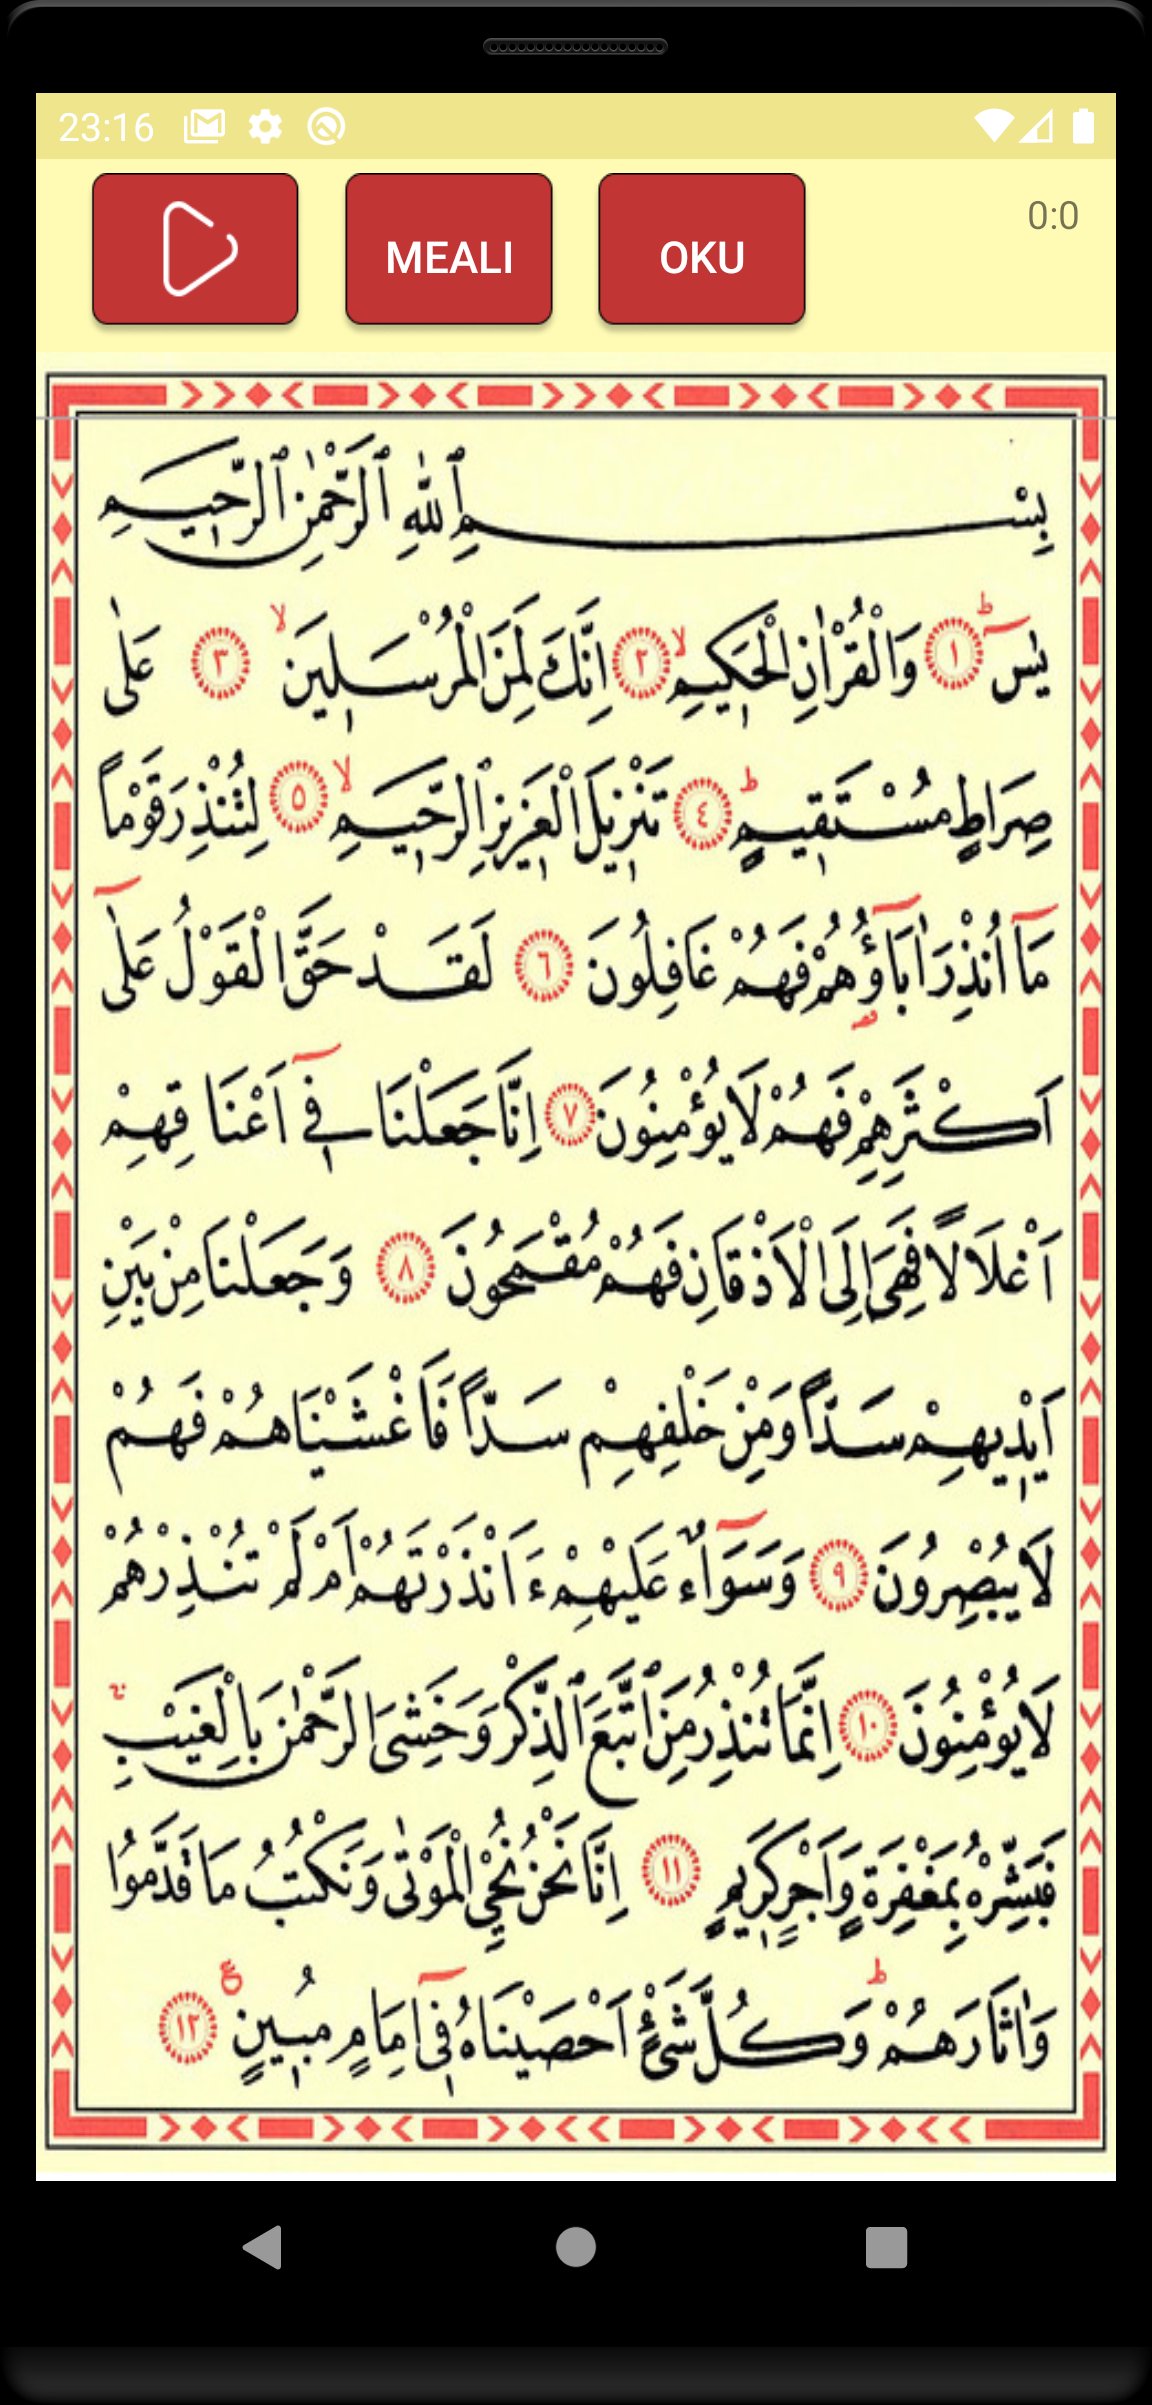 23:16
MEALI
OKU
0:0
بِسْمِ ٱللّٰهِ ٱلرَّحْمٰنِ ٱلرَّحِيمِ
يٰسٓ ۚ ﴿١﴾ وَالْقُرْاٰنِ الْحَكِيمِۙ ﴿٢﴾ اِنَّكَ لَمِنَ الْمُرْسَلِينَۙ ﴿٣﴾ عَلٰى
صِرَاطٍ مُسْتَقِيمٍۜ ﴿٤﴾ تَنْزِيلَ الْعَزِيزِ الرَّحِيمِۙ ﴿٥﴾ لِتُنْذِرَ قَوْمًا
مَٓا اُنْذِرَ اٰبَٓاؤُ۬هُمْ فَهُمْ غَافِلُونَ ﴿٦﴾ لَقَدْ حَقَّ الْقَوْلُ عَلٰٓى
اَكْثَرِهِمْ فَهُمْ لَا يُؤْمِنُونَ ﴿٧﴾ اِنَّا جَعَلْنَا فِٓي اَعْنَاقِهِمْ
اَغْلَالًا فَهِيَ اِلَى الْاَذْقَانِ فَهُمْ مُقْمَحُونَ ﴿٨﴾ وَجَعَلْنَا مِنْ بَيْنِ
اَيْدِيهِمْ سَدًّا وَمِنْ خَلْفِهِمْ سَدًّا فَاَغْشَيْنَاهُمْ فَهُمْ
لَا يُبْصِرُونَ ﴿٩﴾ وَسَوَٓاءٌ عَلَيْهِمْ ءَاَنْذَرْتَهُمْ اَمْ لَمْ تُنْذِرْهُمْ
لَا يُؤْمِنُونَ ﴿١٠﴾ اِنَّمَا تُنْذِرُ مَنِ ٱتَّبَعَ ٱلذِّكْرَ وَخَشِيَ الرَّحْمٰنَ بِالْغَيْبِۚ
فَبَشِّرْهُ بِمَغْفِرَةٍ وَاَجْرٍ كَرِيمٍ ﴿١١﴾ اِنَّا نَحْنُ نُحْيِ الْمَوْتٰى وَنَكْتُبُ مَا قَدَّمُوا
وَاٰثَارَهُمْۜ وَكُلَّ شَيْءٍ اَحْصَيْنَاهُ فِٓي اِمَامٍ مُبِينٍ ﴿١٢﴾ ع